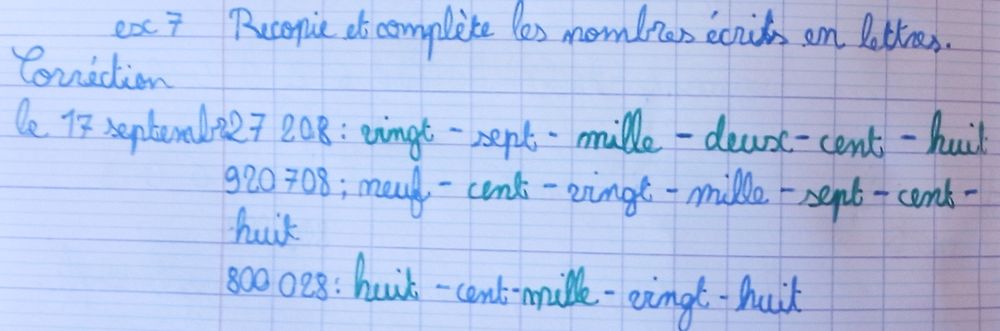 exc 7 Recopie et complète les nombres écrits en lettres.
Corréction
le 17 septembre 27 208 : vingt - sept - mille - deux - cent - huit
920 708 ; neuf - cent - vingt - mille - sept - cent -
huit
800 028 : huit - cent - mille - vingt - huit